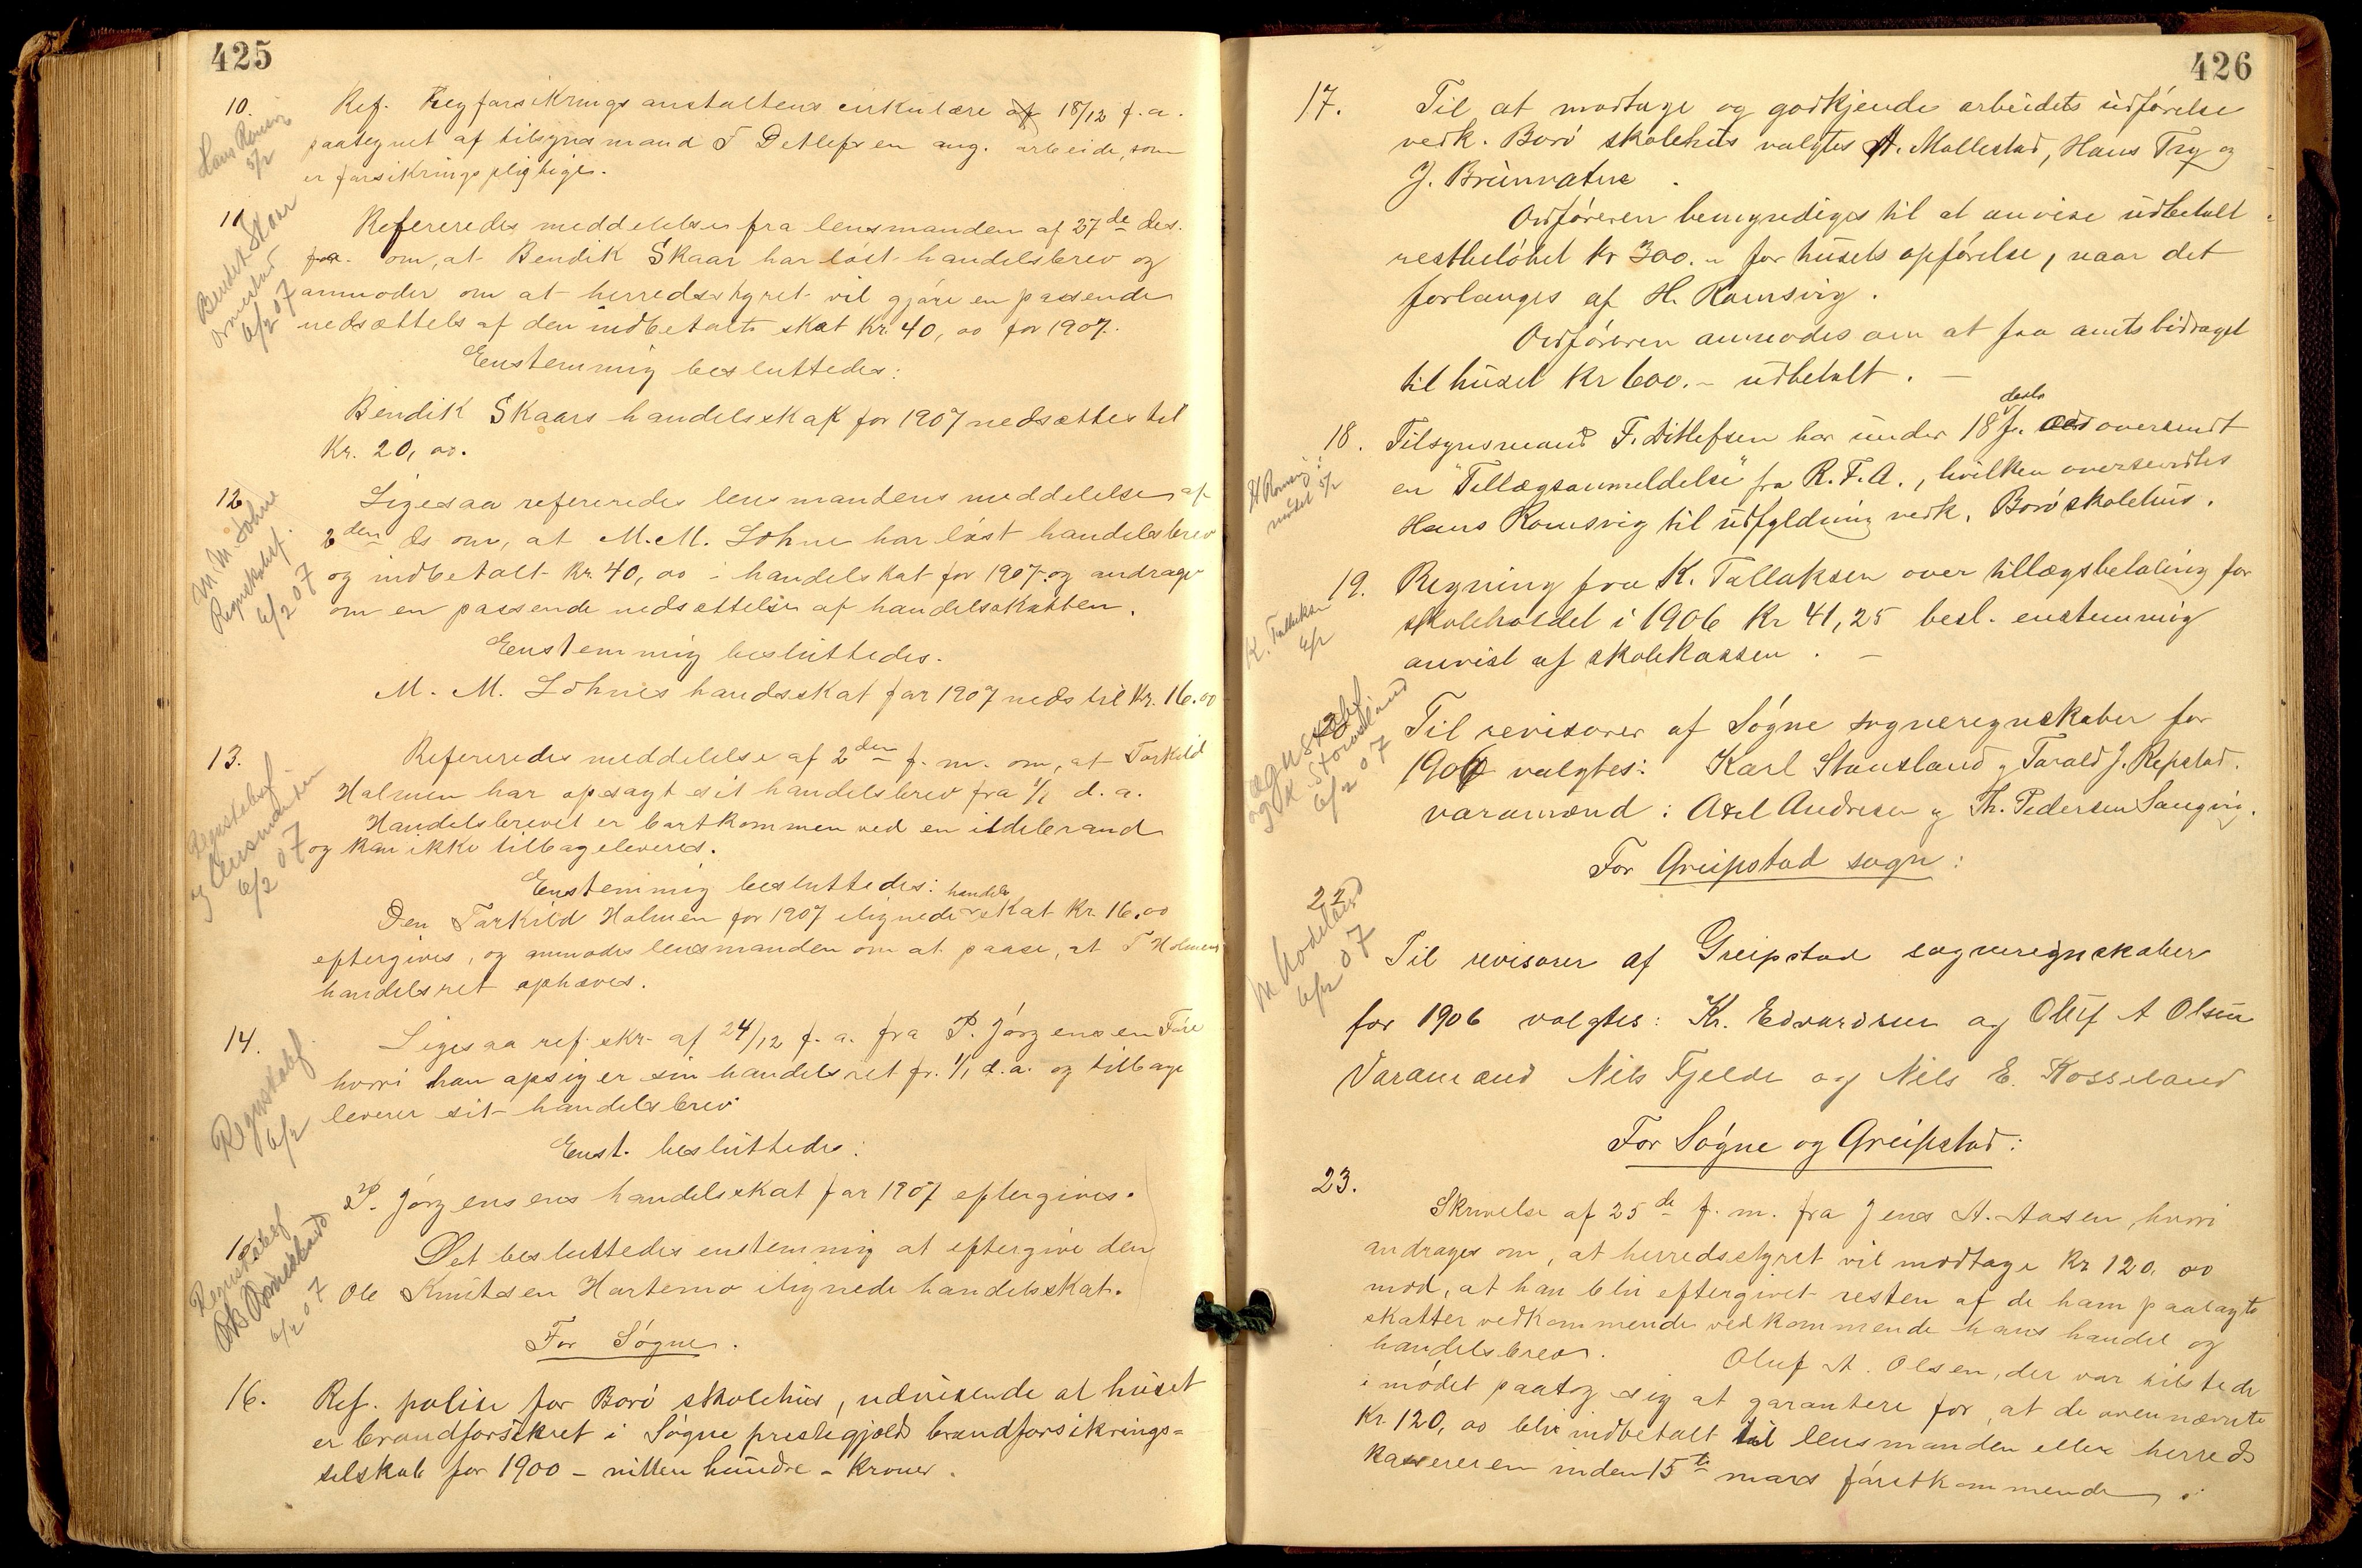 425
10. Ref. Rigforsikringsanstaltens cirkulære af 18/12 f.a.
paategnet af tilsynsmand F Detlefsen ang. arbeide, som
er forsikringspligtige.
Hans
5/2
11 Refereredes meddelelse fra lensmanden af 27de des.
f.a. om, at Bendik Skaar har löst handelsbrev og
anmoder om at herredsstyret vil gjöre en passende
nedsættels af den indbetalte skat Kr. 40,00 for 1907.
Bendik Skaar
6/2 07
Eenstemmig besluttedes:
Bendik Skaars handelsskat for 1907 nedsættes til
Kr. 20,00.
12 Ligesaa refereredes lensmandens meddelelse af
2den ds om, at M. M. Lohne har löst handelsbrev
og indbetalt Kr. 40,00 i handelskat for 1907 og andrager
om en passende nedsættelse af handelsskatten.
M M Lohne
Regnskabsf.
6/2 07
Eenstemmig beslüttedes.
M. M. Lohnes handsskat for 1907 neds til Kr. 16.00
13. Refereredes meddelelse af 2den f. m. om, at Torkild
Holmen har opsagt sit handelsbrev fra 1/1 d.a.
Handelsbrevet er bortkommen ved en ildebrand
og kan ikke tilbageleveres.
Regnskabsf
og lensmanden
6/2 07
Eenstemmig besluttedes:
Den Torkild Holmen for 1907 ilignede handelsskat Kr. 16.00
eftergives, og anmodes lensmanden om at paase, at T Holmens
handelsret ophæves.
14. Ligesaa ref. skr. af 24/12 f. a. fra P. Jörgensen
hvori han opsiger sin handelsret fr. 1/1 d.a. og tilbage
leverer sit handelsbrev
Regnskabsf
6/2
Eenst. beslüttedes:
P. Jörgensens handelsskat for 1907 eftergives.
15 Det besluttedes enstemmig at eftergive den
Ole Knütsen Hortemo ilignede handelsskat.
Regnskabsf
6/2 07
For Sögne.
16. Ref. polise for Borö skolehüs, udvisende at hüset
er brandforsikret i Sögne prestegjelds brandforsikrings=
selskab for 1900 - nitten hündre - Kroner.
426
17. Til at modtage og godkjende arbeidets üdförelse
vedk. Borö skolehüs valgtes A. Mollestad, Hans Try og
J. Brünvatne.
Ordföreren bemyndiges til at anvise üdbetalt
restbelöbet kr 300.- for hüsets opförelse, naar det
forlanges af H. Romsvig.
Ordföreren anmodes om at faa amtsbidraget
til hüset Kr 600.- üdbetalt. -
18. Tilsynsmand F. Ditlefsen har ünder 18 f. oversendt
en "Tillægsanmeldelse" fra R.F.A., hvilken oversendtes
Hans Romsvig til üdfyldning vedk. Borö skolehüs.
H Romsvig i
mödet 5/2
19. Regning fra K. Tallaksen over tillægsbetaling for
skoleholdet i 1906 Kr 41,25 besl. enstemmig
anvist af skolekassen. -
K. Tallaksen
6/2
Til revisorer af Sögne sogneregnskaber for
1906 valgtes: Karl Stousland og Torald J. Repstad.
varamænd: Axel Andresen og Th. Pedersen Langvig.
6/2 07
For Greipstad sogn:
22
Til revisorer af Greipstad sogneregnskaber
for 1906 valgtes: Kr. Edvardsen og Olüf A Olsen
Varamænd Nils Fjelde og Nils E. Kosseland
6/2 07
For Sögne og Greipstad:
23.
Skrivelse af 25de f. m. fra Jens A. Aasen, hvori
andrages om, at herredsstyret vil modtage Kr 120,00
mod, at han blir eftergivet resten af de ham paalagte
skatter vedkommende vedkommende hans handel og
handelsbrev. Oluf A. Olsen, der var tilstede
i mödet paatog sig at garantere for, at de ovennævnte
Kr. 120,00 blir indbetalt til lensmanden eller herreds
kassereren inden 15de mars förstkommende.